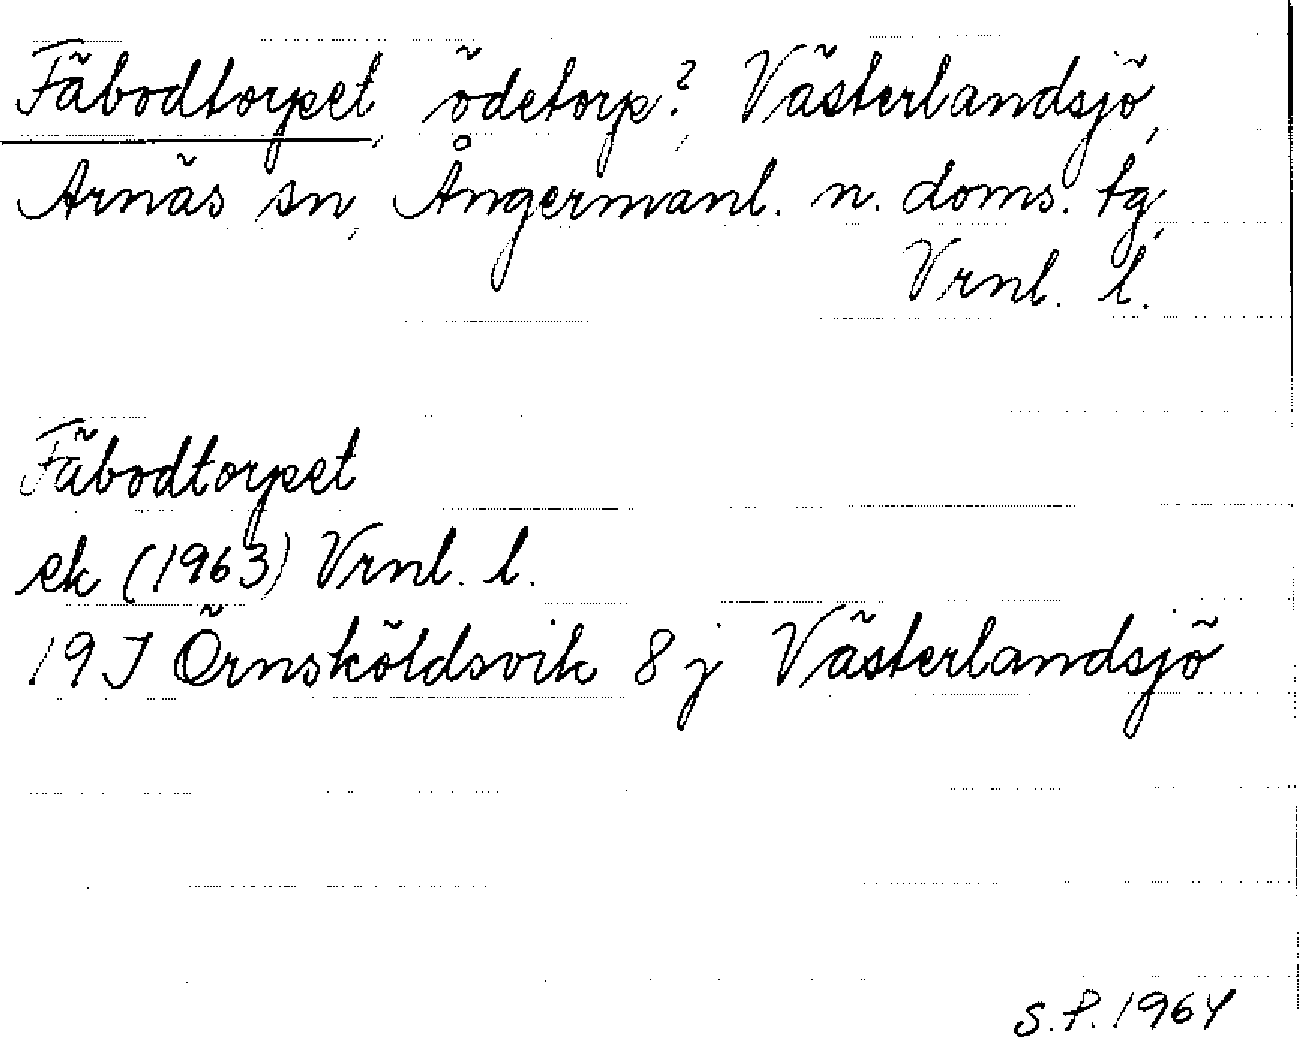 Fäbodtorpet, ödetorp?, Västerlandsjö,
Arnäs sn, Ångermanl. n. doms. tg,
Vrnl. l.
Fäbodtorpet
ek (1963) Vrnl. l.
19J Örnsköldsvik 8 j Västerlandsjö
S.P. 1964